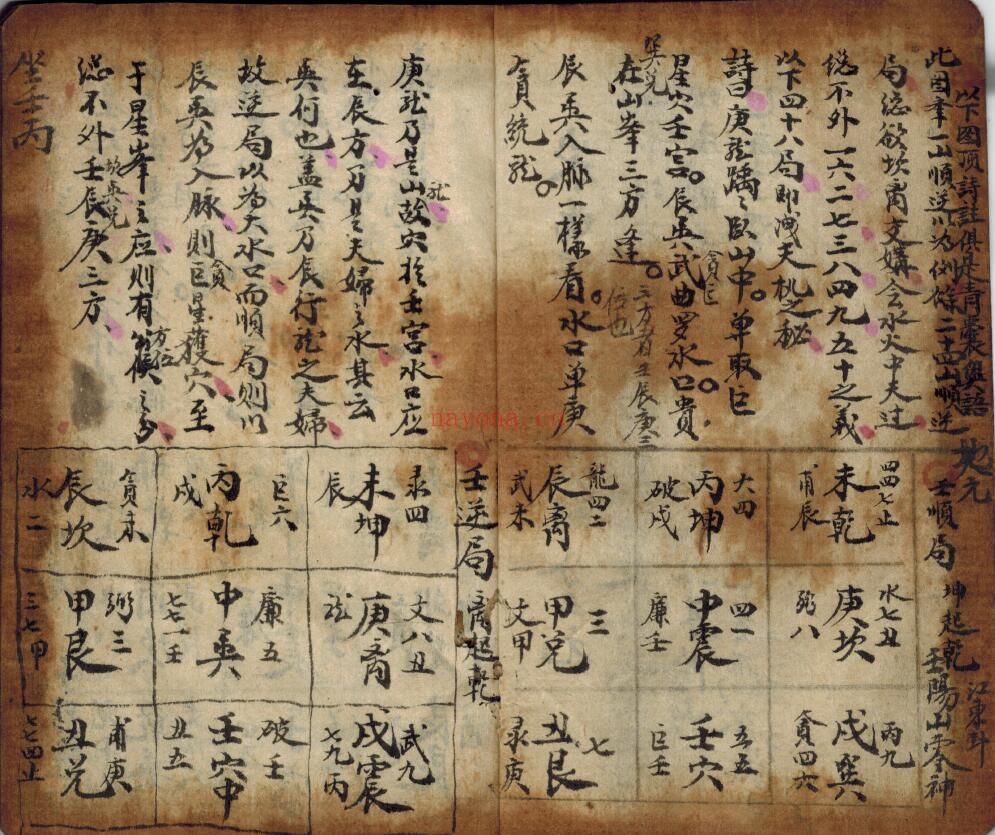 以下圖頂詩註俱是青囊奧語
此圖章一山順逆以為例餘二十四山順逆
局總欲坎离交媾会水火中天过
總不外一六二七三八四九五十之義
以下四十八局即洩天机之秘
詩曰庚龍踽踽臥山中。单取巨
星穴壬宫。辰巽武曲罗水口。貴
貪巨
巽兑
在山峯三方逢。
三方者壬辰庚三
位也
辰巽入脉一樣看。水口单庚
貪統龍。
庚龍乃是山故穴於壬宫水口应
龍
在辰方乃是夫婦之水其云
巽行也盖巽乃辰行龍之夫婦
故逆局以為大水口而順局則以
辰巽為入脉則巨星獲穴至
貪
方位
于星峯主应則有
故巽兑
總不外壬辰庚三方
坐壬丙
地元
壬順局
坤起乾
壬陽山零神
江東卦
四四七止
未乾
甫辰
大四
丙坤
破戌
龍四二
辰离
武未
水七丑
庚坎
弼八
四一
中震
廉壬
三
甲兑
文甲
丙九
戌巽
貪四六
五五
壬穴
巨壬
七
丑艮
录庚
壬逆局
离起乾
录四
未坤
辰
巨六
丙乾
戌
貪未
辰坎
水二
文八丑
庚离
龍
廉五
中巽
七七一壬
弼三
甲艮
三七甲
武九
戌震
七九丙
破壬
壬穴中
丑五
甫庚
丑兑
七七四止
nayona.cn